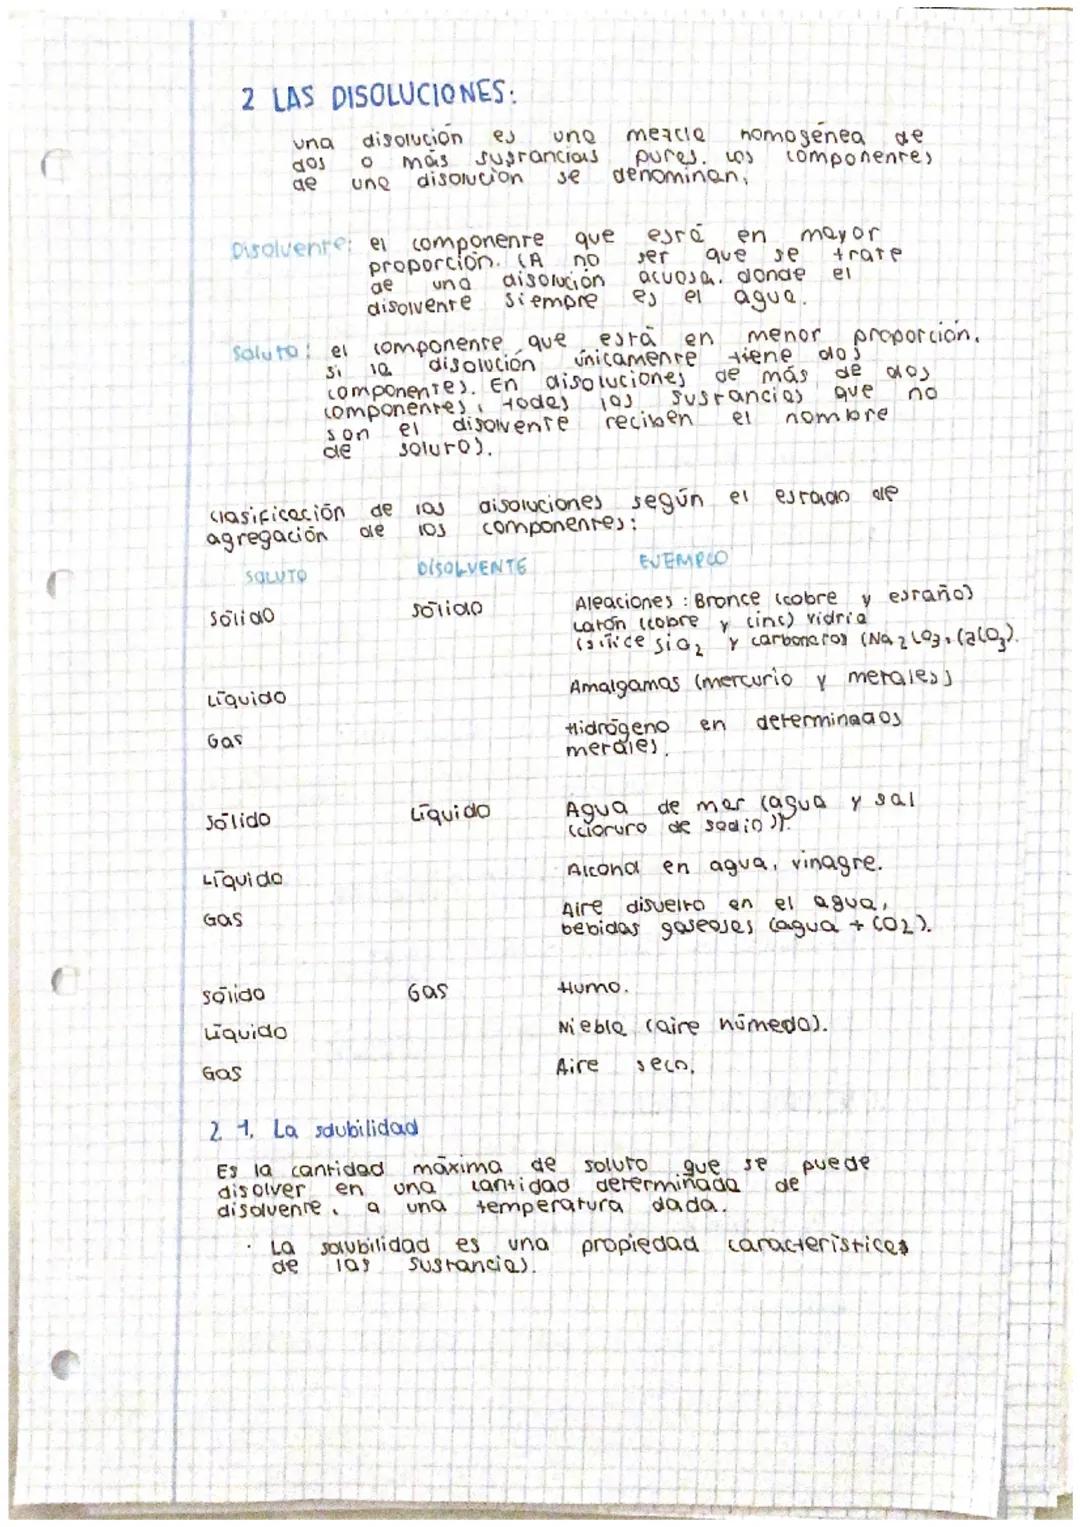 2 LAS DISOLUCIONES:
una disolución es una mezcla homogénea de
dos o más sustancias puras. Los componentes
de una disolución se denominan,
Disolvente: el componente que está en mayor
proporción. (A no ser que se trate
de una disolución acuosa. donde el
disolvente siempre es el agua.
Soluto: el componente que está en menor proporción.
si la disolución únicamente tiene dos
componentes. En disoluciones de más de dos
componentes, todas las sustancias que no
son el disolvente reciben el nombre
de soluto).
Clasificación de las disoluciones según el estado de
agregación de los componentes:
SOLUTO DISOLVENTE EJEMPLO
Sólido Sólido Aleaciones: Bronce (cobre y estaño)
Latón (cobre y cinc) vidrio
(sílice SiO2 y carbonatos (Na2CO3, CaCO3).
Líquido Amalgamas (mercurio y metales)
Gas Hidrógeno en determinados
metales.
Sólido Líquido Agua de mar (agua y sal
(cloruro de sodio)).
Líquido Alcohol en agua, vinagre.
Gas Aire disuelto en el agua,
bebidas gaseosas (agua + CO2).
Sólido Gas Humo.
Líquido Niebla (aire húmedo).
Gas Aire seco.
2.1. La solubilidad
Es la cantidad máxima de soluto que se puede
disolver en una cantidad determinada de
disolvente, a una temperatura dada.
· La solubilidad es una propiedad característica
de las sustancias.